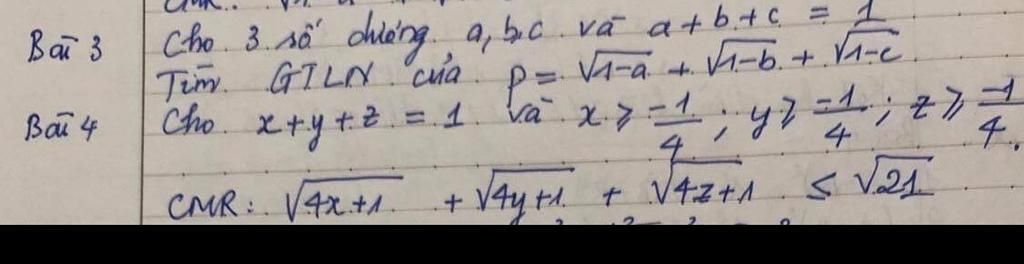 Bài 3 Cho 3 số dương a, b, c và a + b + c = 1
Tìm GTLN của P = √1-a + √1-b + √1-c
Bài 4 Cho x + y + z = 1 và x ≥ -1/4 ; y ≥ -1/4 ; z ≥ -1/4.
CMR: √4x+1 + √4y+1 + √4z+1 ≤ √21